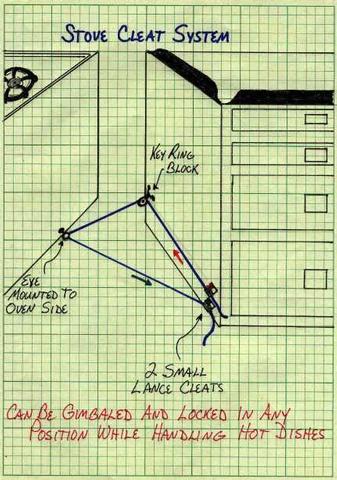 STOVE CLEAT SYSTEM
KEY RING
BLOCK
EYE
MOUNTED TO
OVEN SIDE
2 SMALL
LANCE CLEATS
CAN BE GIMBALED AND LOCKED IN ANY
POSITION WHILE HANDLING HOT DISHES